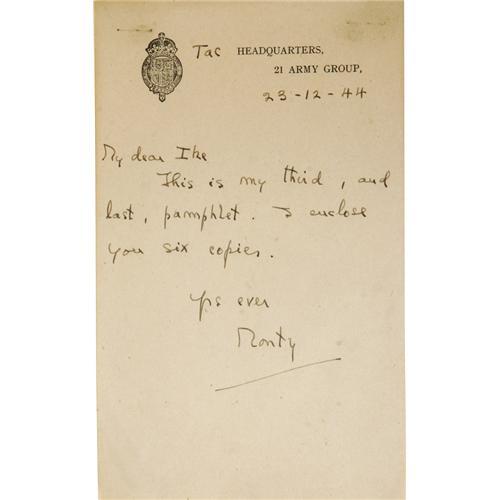 Tac HEADQUARTERS,
21 ARMY GROUP,
23-12-44
My dear Ike
This is my third, and
last, pamphlet. I enclose
you six copies.
Yrs ever
Monty